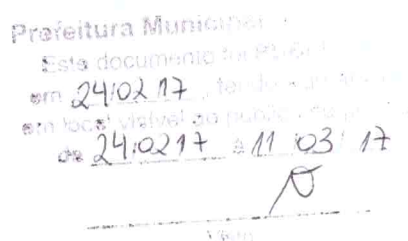 Prefeitura Municipal
Este documento foi
em 24/02 17, tendo
em local visivel ao publico
de 24/02 17 à 11/03/17
Visto